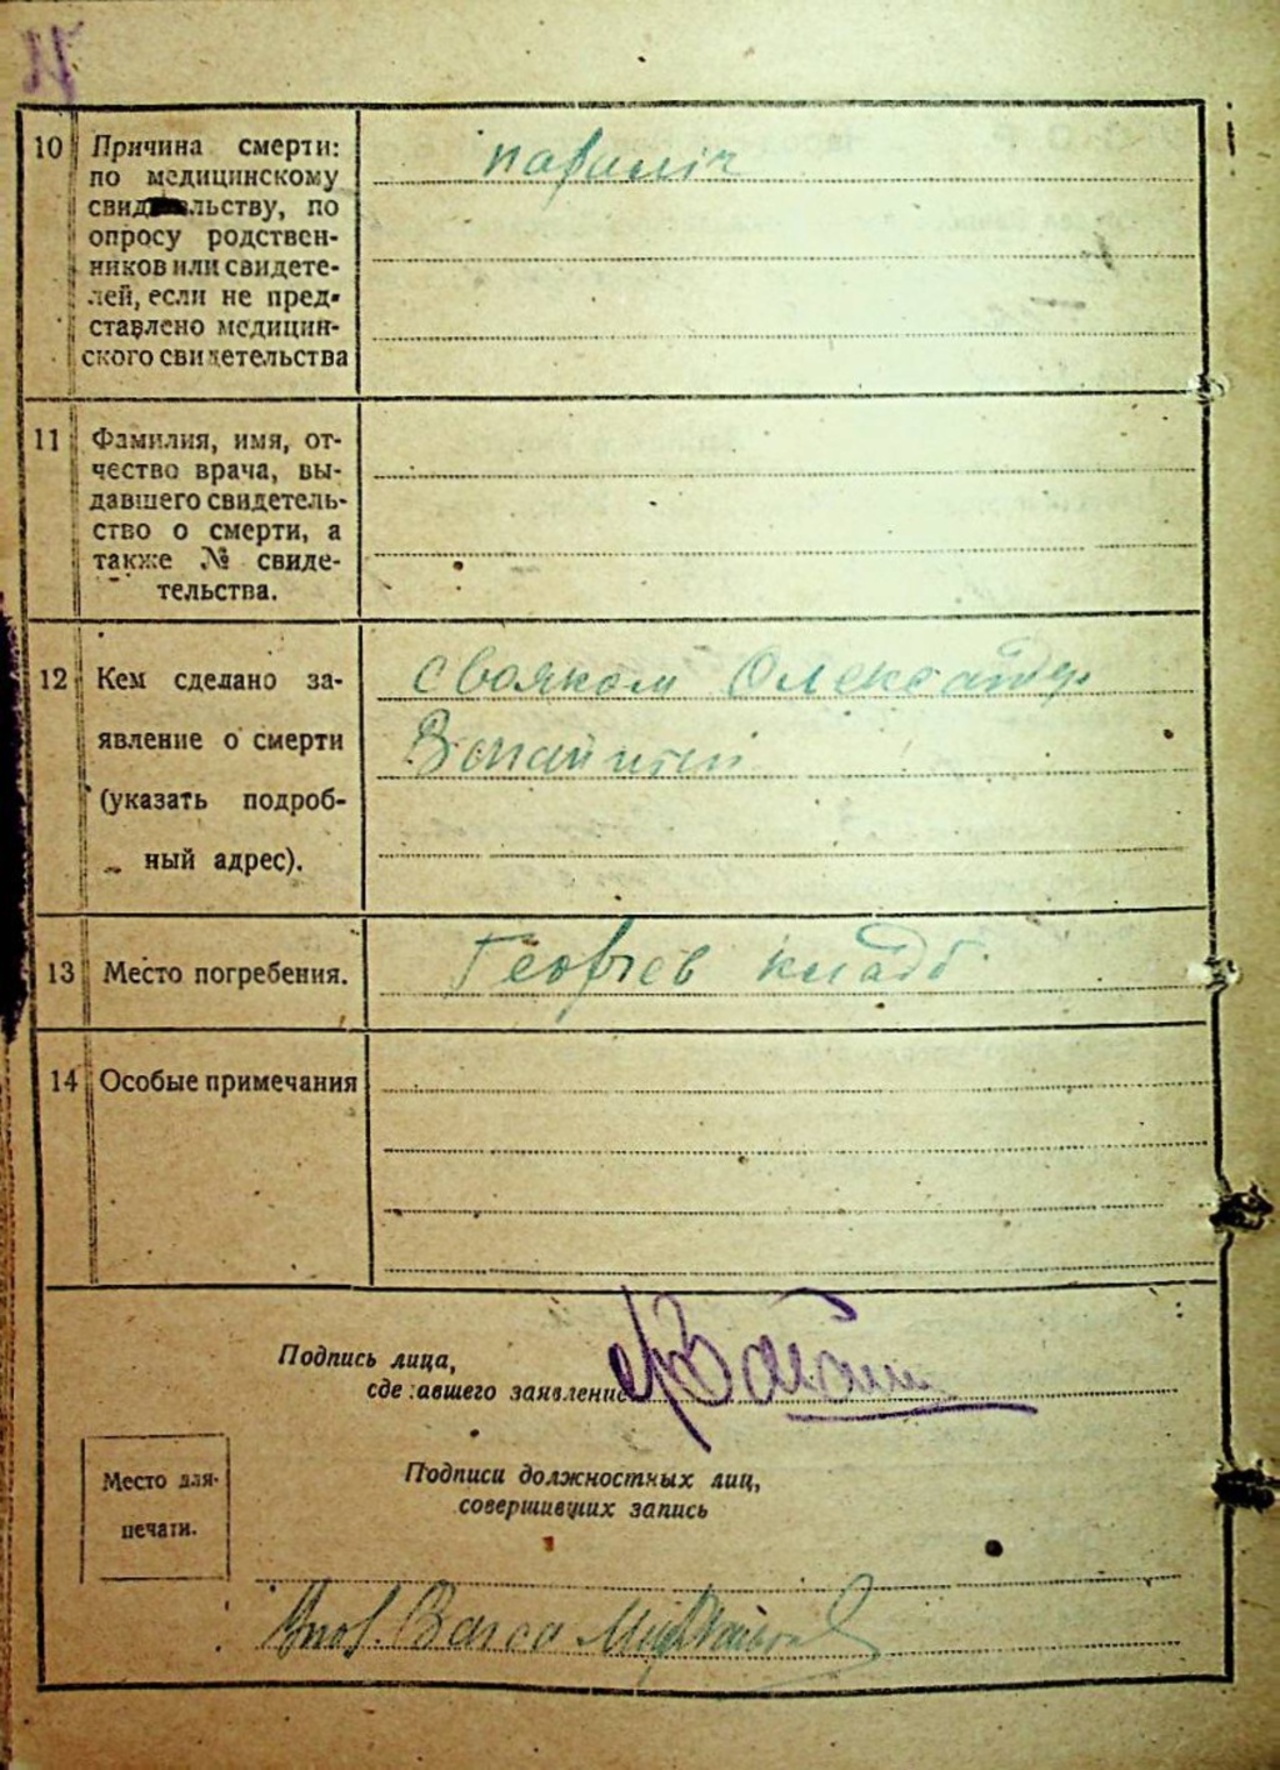 10 Причина смерти:
по медицинскому
свидетельству, по
опросу родствен-
ников или свидете-
лей, если не пред-
ставлено медицин-
ского свидетельства
параліч
11 Фамилия, имя, от-
чество врача, вы-
давшего свидетель-
ство о смерти, а
также № свиде-
тельства.
12 Кем сделано за-
явление о смерти
(указать подроб-
ный адрес).
свояком Олександр
13 Место погребения.
Георгіев кладб.
14 Особые примечания
Подпись лица,
сделавшего заявление
Место для
печати.
Подписи должностных лиц,
совершивших запись